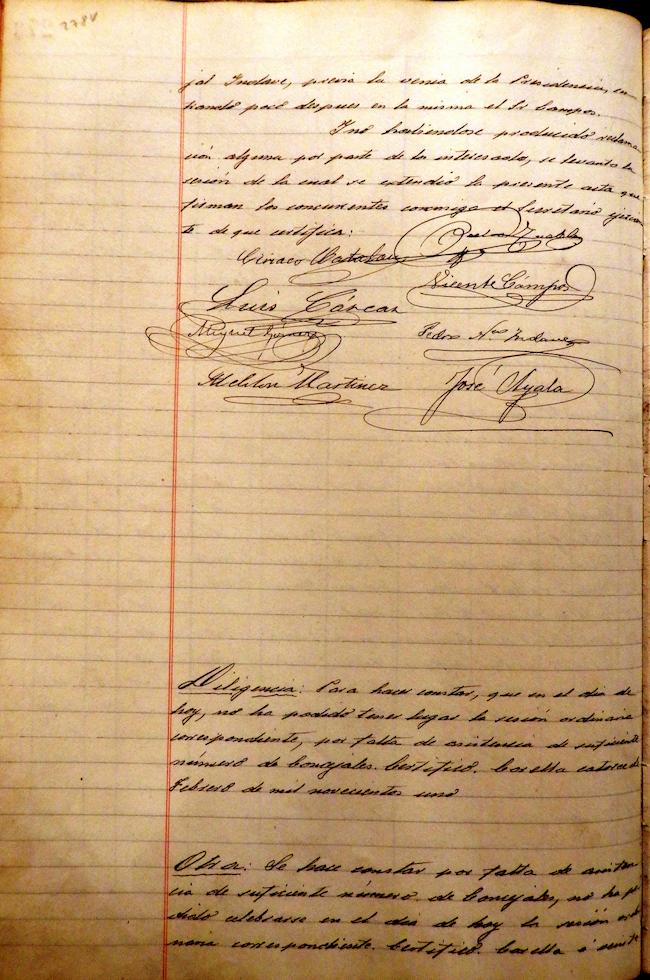 278v
jal Indave, previa la venia de la Presidencia, en-
trando poco despues en la misma el Sr Campos.
I no habiendose producido reclama-
ción alguna por parte de los interesados, se levantó la
sesión de la cual se extendió la presente acta que
firman los concurrentes conmigo el Secretario
te de que certifico:
Ciriaco Catalan
Vicente Campos
Luis Cárcar
Miguel
Pedro Nco Indave
Meliton Martinez
José Ayala
Diligencia: Para hacer constar, que en el dia de
hoy, no ha podido tener lugar la sesión ordinaria
correspondiente, por falta de asistencia de suficiente
número de Concejales. Certifico. Corella catorce de
Febrero de mil novecientos uno
Otra: Se hace constar por falta de asisten-
cia de suficiente número de Concejales, no ha po-
dido celebrarse en el dia de hoy la sesión ordi-
naria correspondiente. Certifico. Corella á veinte